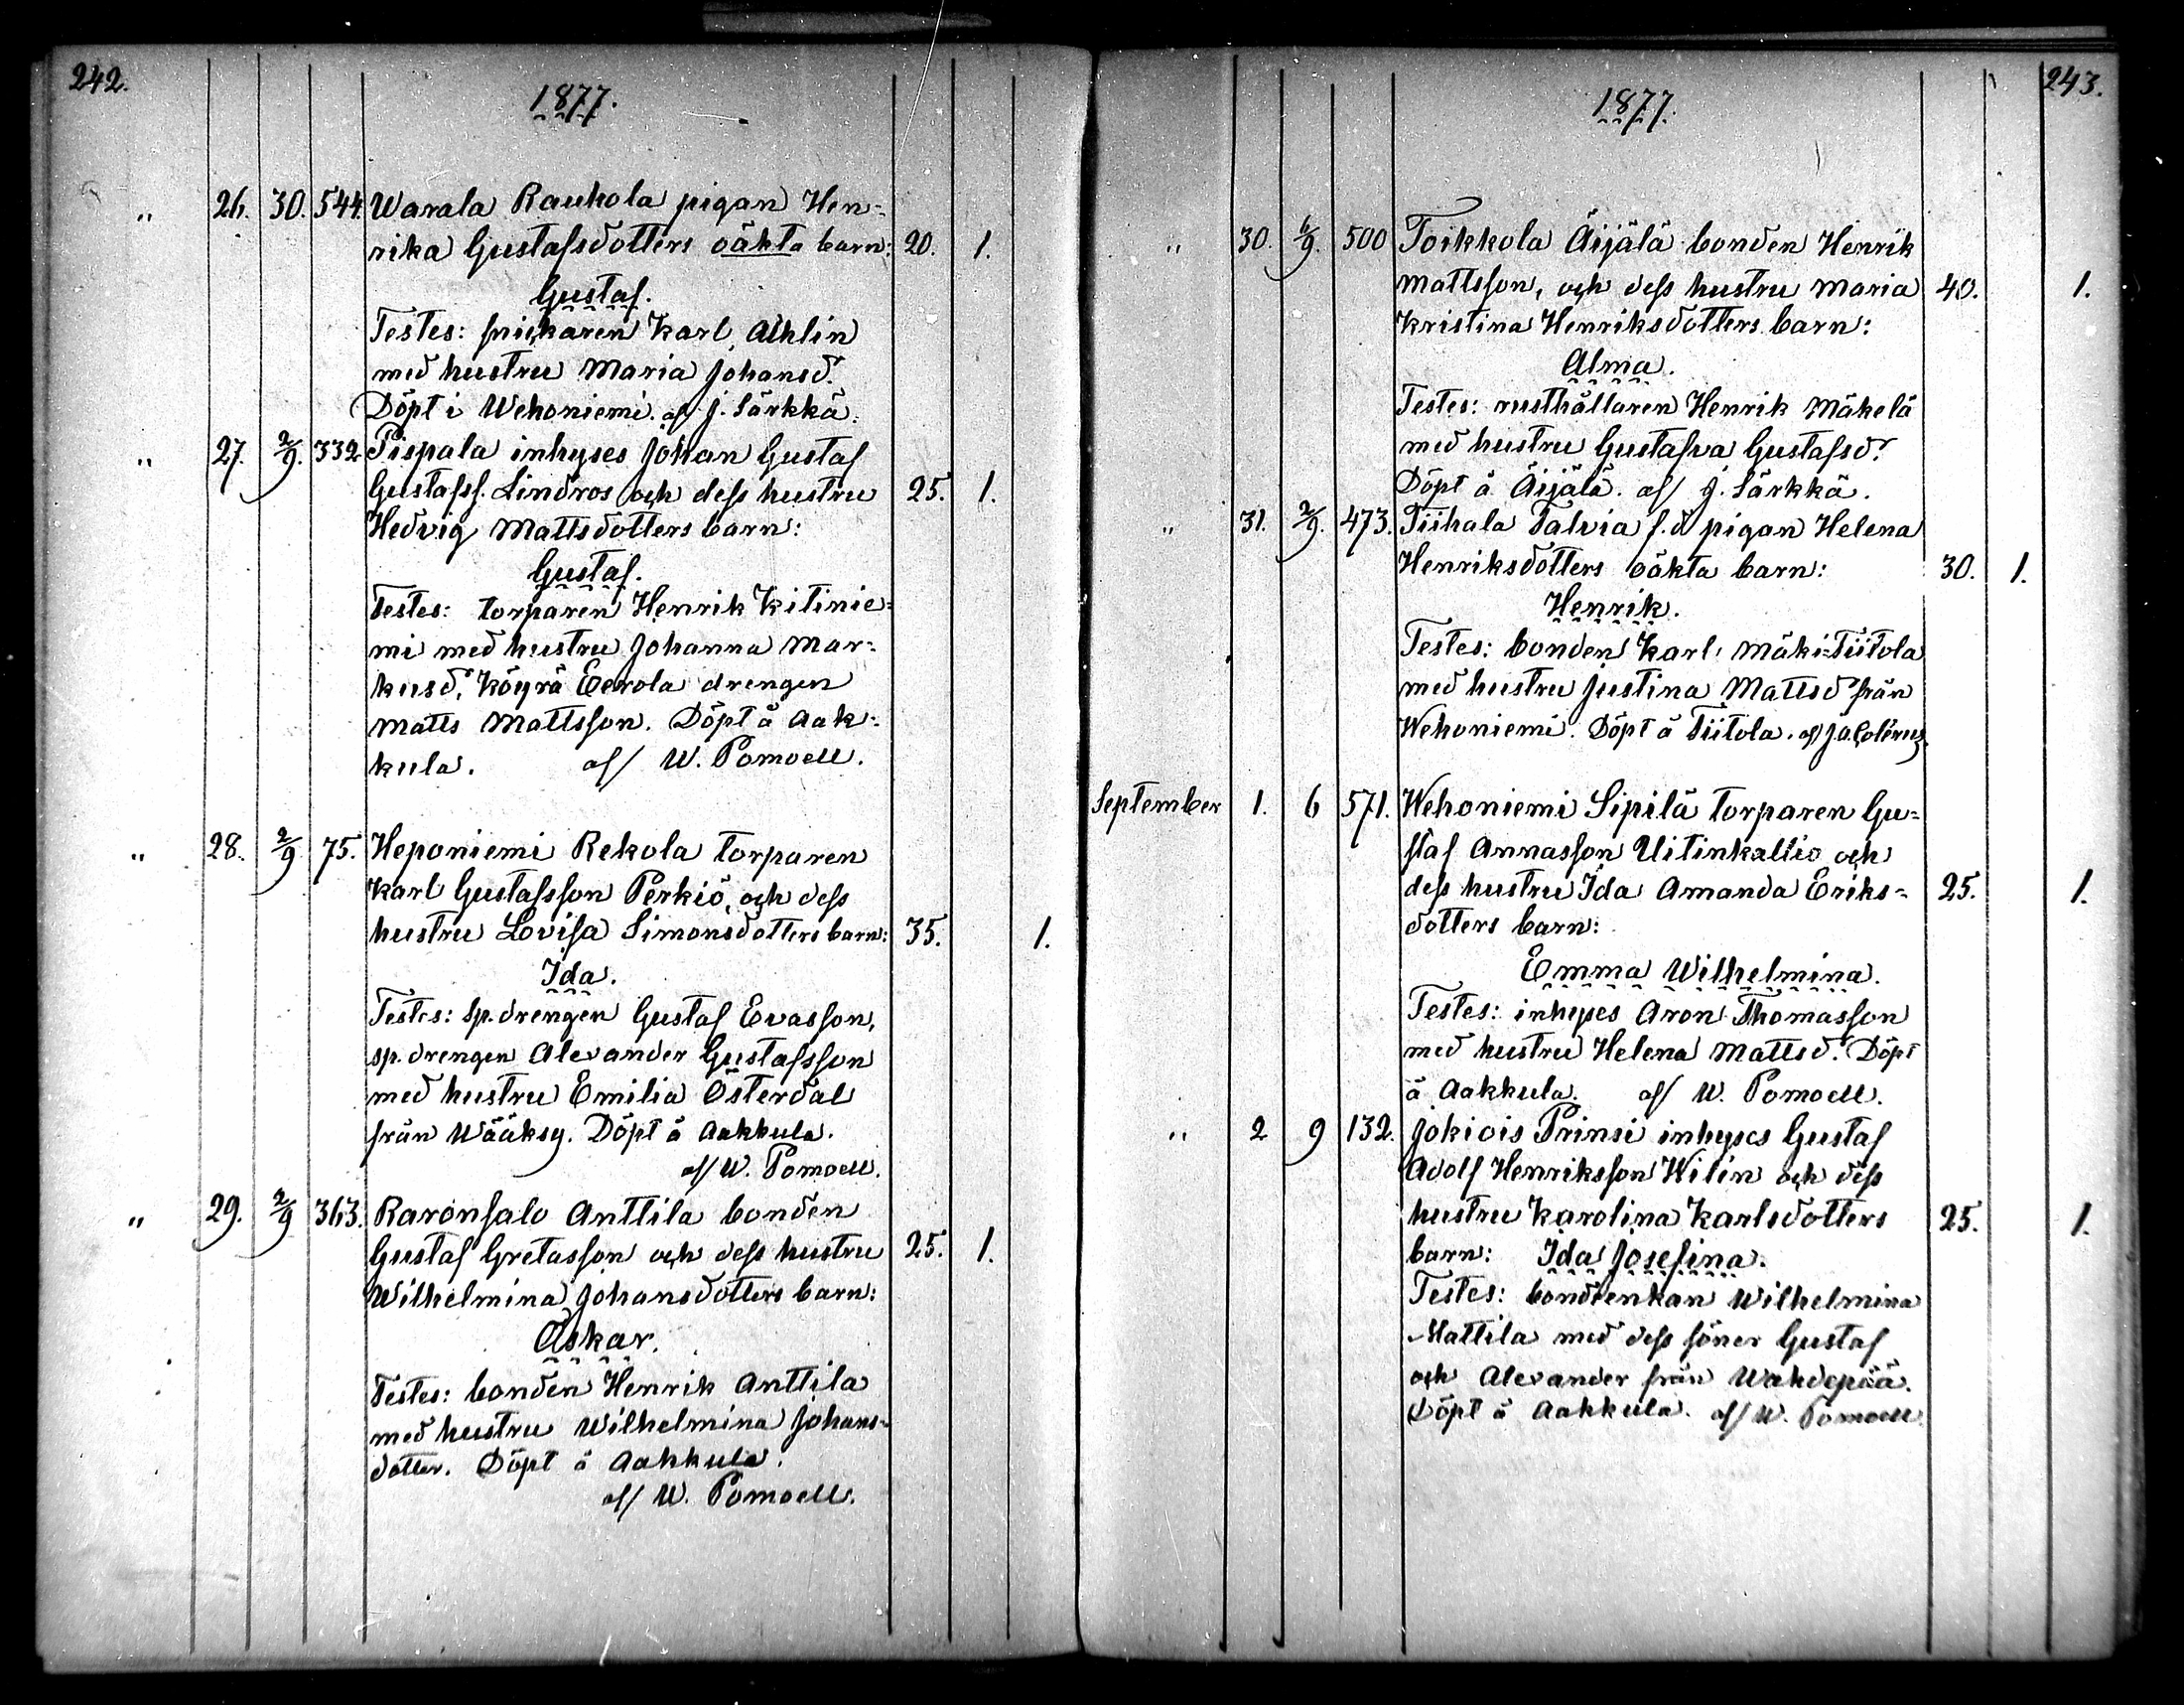 242.
1877.
" 26. 30. 544. Warala Raukola pigan Hen-
rika Gustafsdotters oäkta barn: 20. 1.
Gustaf.
Testes: prickaren Karl Ahlin
med hustru Maria Johansd.
Döpt i Wehoniemi. af J. Särkkä.
" 27. 2/9. 332 Pispala inhyses Johan Gustaf
Gustafss. Lindros och dess hustru 25. 1.
Hedvig Mattsdotters barn:
Gustaf.
Testes: torparen Henrik Kitinie-
mi med hustru Johanna Mar-
kusd., Köyrä Eerola drengen
Matts Mattsson. Döpt å Aak-
kula. af W. Pomoell.
" 28. 2/9 75. Heponiemi Rekola torparen
Karl Gustafsson Perkiö, och dess
hustru Lovisa Simonsdotters barn: 35. 1.
Ida.
Testes: sp. drengen Gustaf Evasson,
sp. drengen Alexander Gustafsson
med hustru Emilia Österdal
från Wääksy. Döpt å Aakkula.
af W. Pomoell.
" 29. 2/9 363. Raronsalo Anttila bonden
Gustaf Gretasson och dess hustru 25. 1.
Wilhelmina Johansdotters barn:
Oskar.
Testes: bonden Henrik Anttila
med hustru Wilhelmina Johans-
dotter. Döpt å Aakkula.
af W. Pomoell.
243.
1877.
" 30. 6/9. 500 Toikkola Äijälä bonden Henrik
Mattsson, och dess hustru Maria 40. 1.
Kristina Henriksdotters barn:
Alma.
Testes: rusthållaren Henrik Mäkelä
med hustru Gustafva Gustafsd.
Döpt å Äijälä. af J. Särkkä.
" 31. 2/9. 473. Tiihala Talvia f.d. pigan Helena
Henriksdotters oäkta barn: 30. 1.
Henrik.
Testes: bonden Karl Mäki-Tiitola
med hustru Justina Mattsd från
Wehoniemi. Döpt å Tiitola. af
September 1. 6 571. Wehoniemi Sipilä torparen Gu-
staf Annasson Uitinkallio och
dess hustru Ida Amanda Eriks- 25. 1.
dotters barn:
Emma Wilhelmina.
Testes: inhyses Aron Thomasson
med hustru Helena Mattsd. Döpt
å Aakkula. af W. Pomoell.
" 2 9 132. Jokiois Prinsi inhyses Gustaf
Adolf Henriksson Wilén och dess
hustru Karolina Karlsdotters 25. 1.
barn: Ida Josefina.
Testes: bondenkan Wilhelmina
Mattila med dess söner Gustaf
och Alexander från Wahdepää.
Döpt å Aakkula. af W. Pomoell